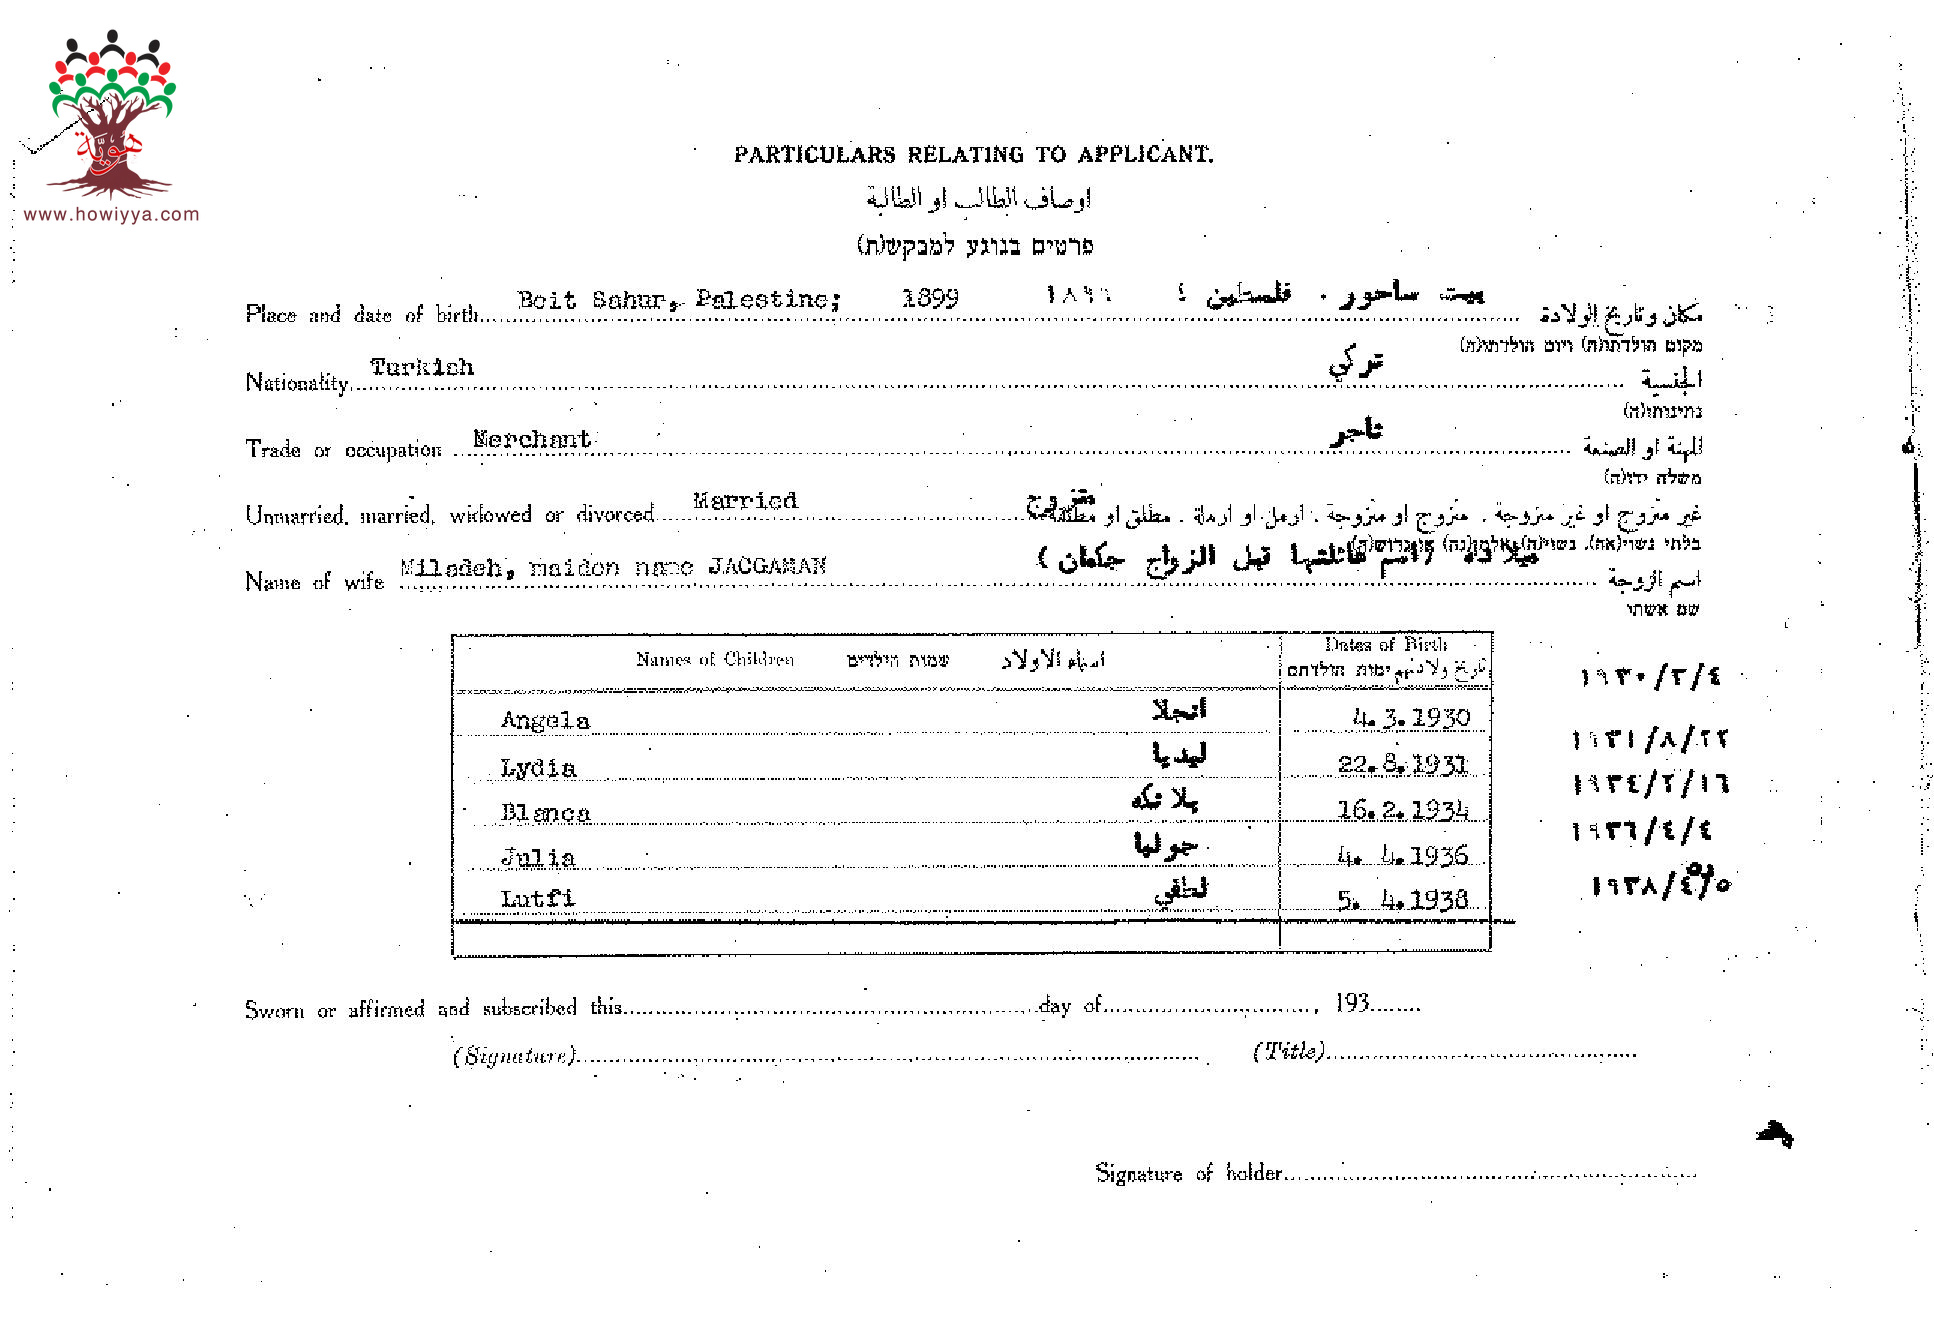 هويّة
www.howiyya.com
PARTICULARS RELATING TO APPLICANT.
اوصاف الطالب او الطالبة
פרטים בנוגע למבקש(ת)
Place and date of birth Beit Sahur, Palestine; 1899 ١٨٩٩ بيت ساحور . فلسطين ؛ مكان وتاريخ الولادة
מקום הולדתו(ת) ויום הולדתו(ה)
Nationality Turkish تركي الجنسية
נתינותו(ה)
Trade or occupation Merchant تاجر المهنة او الصنعة
משלח ידו(ה)
Unmarried, married, widowed or divorced Married متزوج غير متزوج او غير متزوجة . متزوج او متزوجة . ارمل او ارملة . مطلق او مطلقة
בלתי נשוי(אה), נשוי(ה)
Name of wife Miladeh, maiden name JACGAMAN ميلاده (اسم عائلتها قبل الزواج جكمان ) اسم الزوجة
שם אשתו
Names of Children שמות הילדים اسماء الاولاد Dates of Birth
تاريخ ولادتهم ימות הולדתם
Angela انجلا 4.3.1930 ١٩٣٠/٣/٤
Lydia ليديا 22.8.1931 ١٩٣١/٨/٢٢
Blanca بلانكه 16.2.1934 ١٩٣٤/٢/١٦
Julia جوليا 4. 4.1936 ١٩٣٦/٤/٤
Lutfi لطفي 5. 4.1938 ١٩٣٨/٤/٥
Sworn or affirmed and subscribed this day of , 193
(Signature) (Title)
Signature of holder